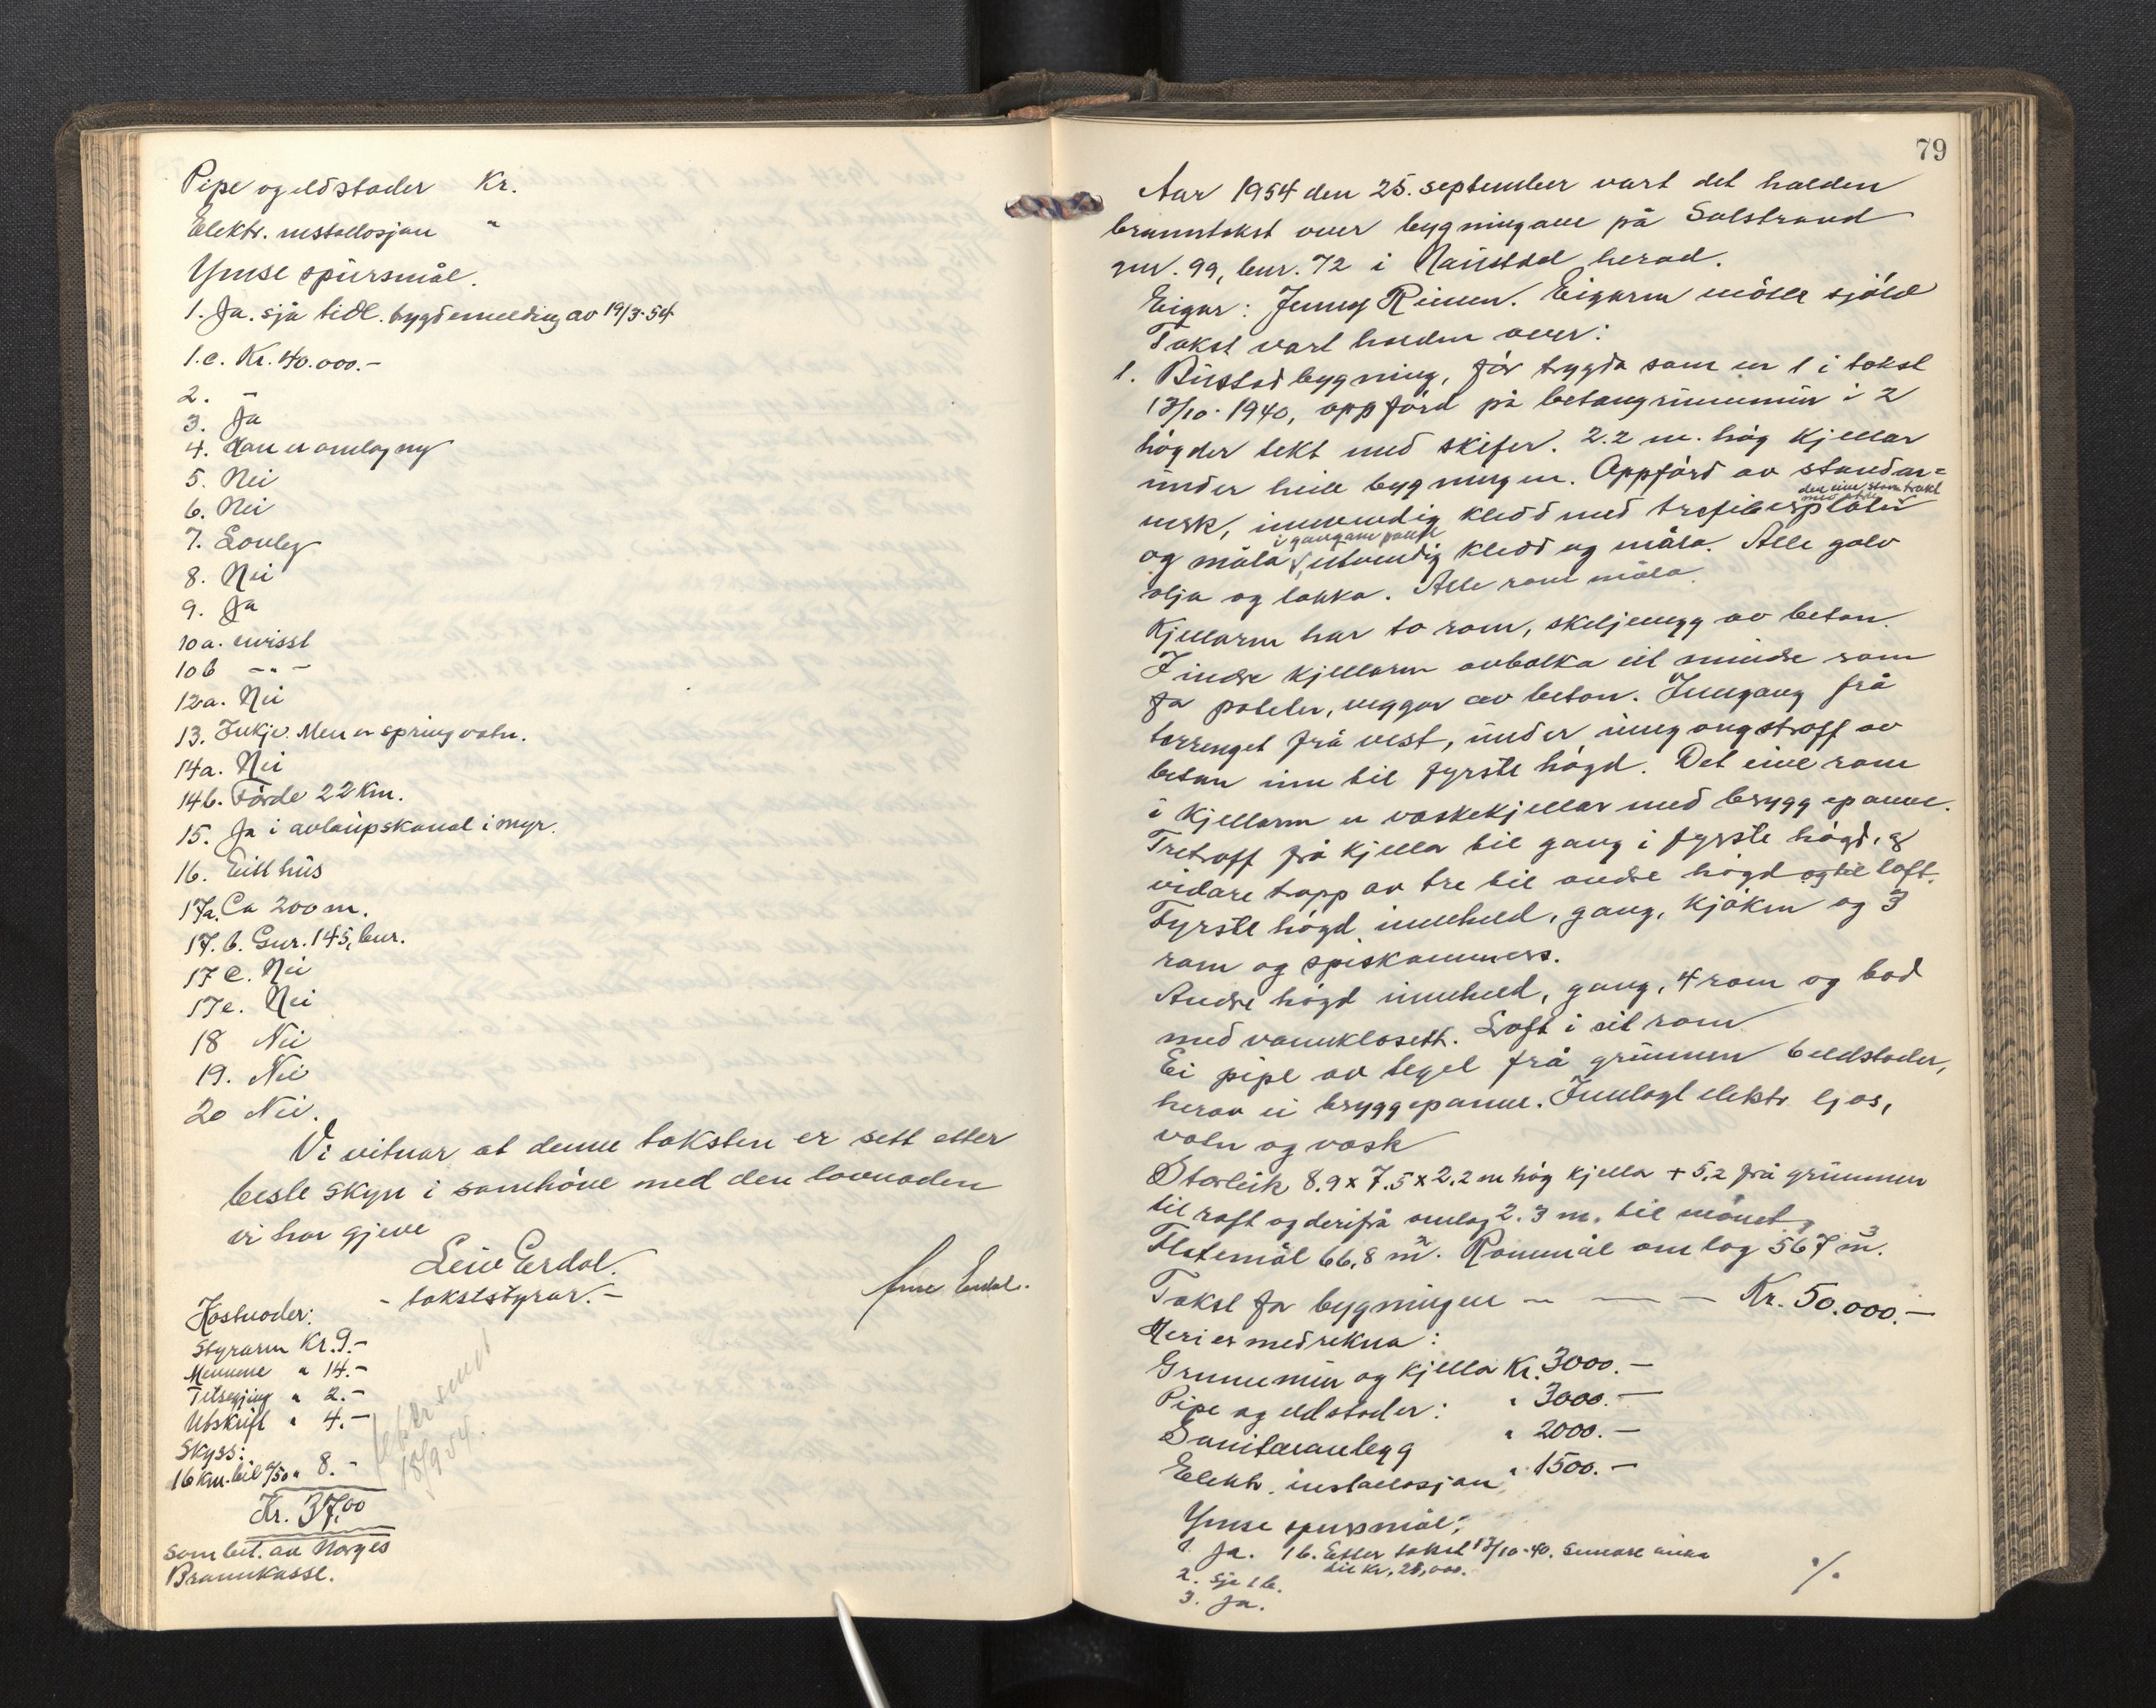 Pipe og eldstader Kr.
Elektr. installasjon "
Ymse spursmål.
1. Ja. sjå tidl. bygdemelding av 19/3-54
1.c. Kr. 40.000.-
2. -
3. Ja
4. Han er omlag ny
5. Nei
6. Nei
7. Lovleg
8. Nei
9. Ja
10a. uvisst
10b -"-
12a. Nei
13. Inkje. Men er springvatn.
14a. Nei
14b. Förde 22 Km.
15. Ja i avlaupskanal i myr.
16. Eitt hus
17a. Ca 200 m.
17.b. Gnr. 145, bnr.
17 c. Nei
17e. Nei
18 Nei
19. Nei
20 Nei.
Vi vitnar at denne taksten er sett etter
beste skyn i samhöve med den lovnaden
vi har gjeve
Leiv Erdal.
- takststyrar. -
Arne Erdal.
Kostnader:
Styraren Kr. 9.-
Mennene " 14.-
Tilsegjing " 2.-
Utskrift " 4.-
Skyss:
16 km. bil a/50 " 8.-
Kr. 37,00
som bet. av Norges
Brannkasse.
18/9 54.
79
Aar 1954 den 25. september vart det halden
branntakst over bygningane på Solstrand
gnr. 99, bnr. 72 i Naustdal herad.
Eigar: Jenny Rimen. Eigaren möter sjölv
Takst vart halden over:
1. Bustadbygning, för trygda som nr 1 i takst
17/10-1940, oppförd på betongrunnmur i 2
högder tekt med skifer. 2.2 m. hög kjellar
under heile bygningen. Oppförd av standar=
verk, innvendig kledd med trefiberplater
den eine stova trekt
med strie
og måla i gangane panel, utvendig kledd og måla. Alle golv
olja og lakka. Alle rom måla.
Kjellaren har to rom, skiljevegg av beton.
I indre kjellaren avbalka eit mindre rom
for poteter, veggar av beton. Inngang frå
terrenget frå vest, under inngangstropp av
beton inn til fyrste högd. Det eine rom
i kjellaren er vaskekjellar med bryggepanne.
Tretropp frå kjella til gang i fyrste högd, &
vidare tropp av tre til andre högd og til loft.
Fyrste högd inneheld, gang, kjöken og 3
rom og spiskammers.
Andre högd inneheld, gang, 4 rom og bad
med vannklosett. Loft i eit rom
Ei pipe av tegel frå grunnen 6 eldstader,
herav ei bryggepanne. Innlagt elektr. ljos,
vatn og vask
Storleik 8.9 x 7.5 x 2.2 m hög kjella + 5,2 frå grunnen
til raft og derifrå omlag 2.3 m. til mönet.
Flatemål 66,8 m². Rommål om lag 567 m³.
Takst for bygningen - - - Kr. 50.000.-
Heri er medrekna:
Grunnmur og kjella Kr. 3000.-
Pipe og eldstader: " 3000.-
Sanitæranlegg " 2000.-
Elektr. installasjon " 1500.-
Ymse spursmål:
1. Ja. 1b. Etter takst 17/10-40. Seinare auka
til Kr. 28,000.
2. Sjå 1b.
3. Ja.
./.